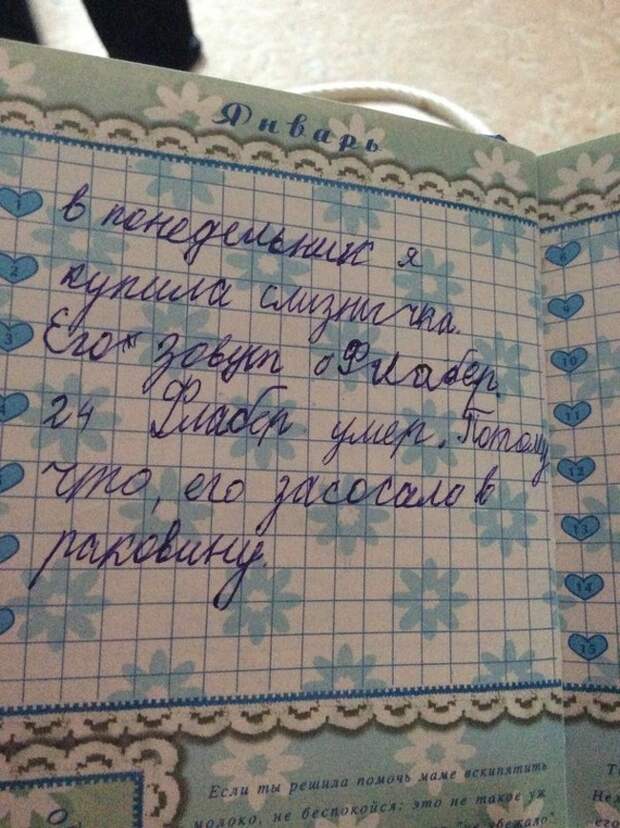 Январь
1
в понедельник я
2
купила слизнячка.
3
Его зовут Флабер.
4
24 Флабер умер. Потому
что, его засосало в
раковину.
6
9
10
11
12
13
14
15
Если ты решила помочь маме вскипятить
молоко, не беспокойся: это не такое уж
убежало"